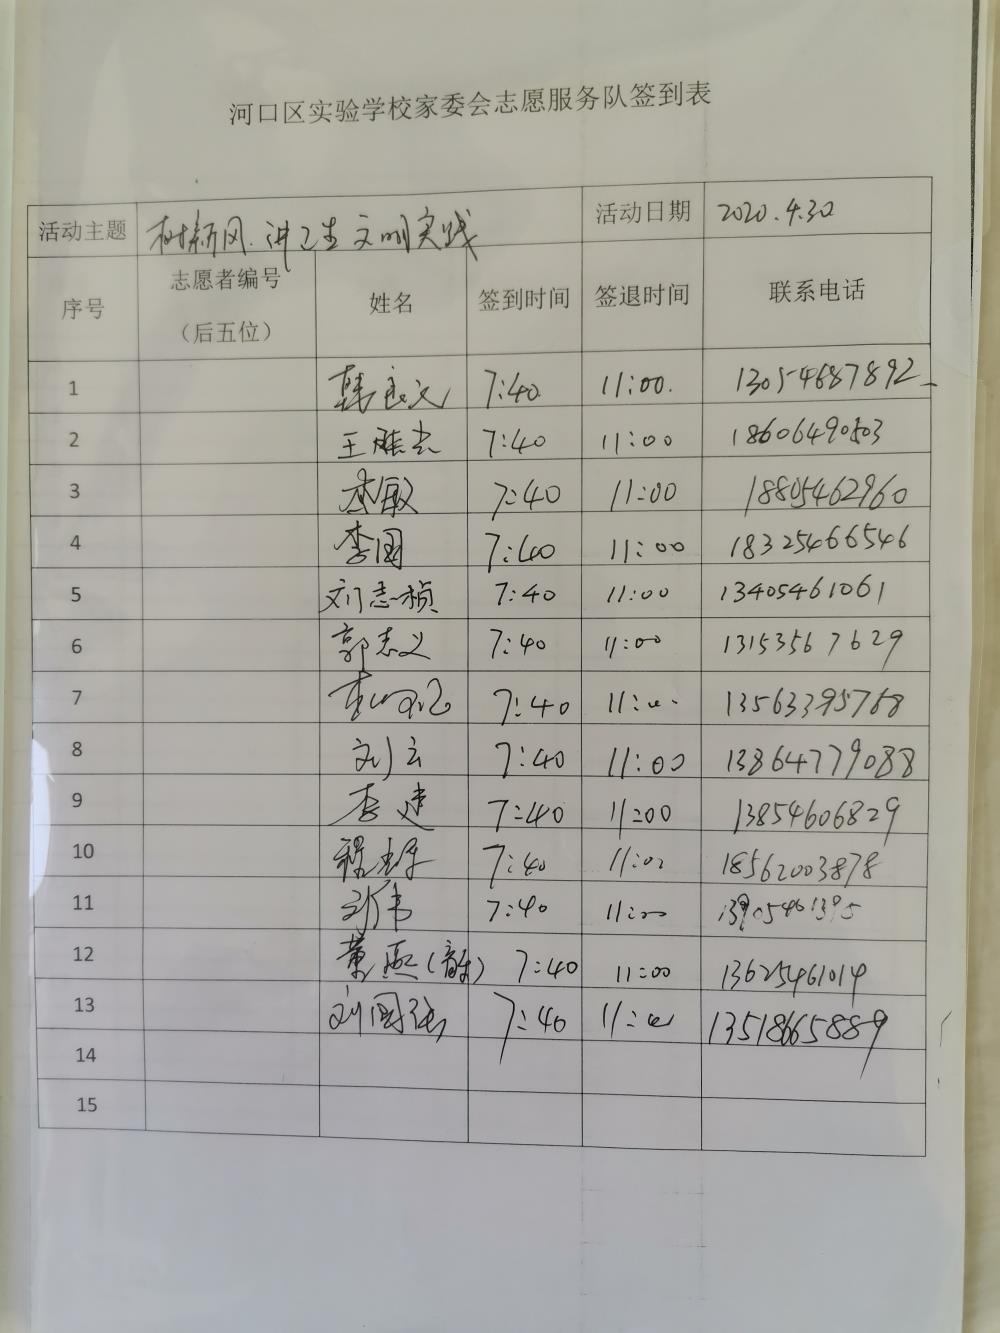 河口区实验学校家委会志愿服务队签到表
活动主题 树新风.讲卫生文明实践 活动日期 2020.4.30
序号 志愿者编号（后五位） 姓名 签到时间 签退时间 联系电话
1 韩文 7:40 11:00. 13054687892
2 王 7:40 11:00 18606490503
3 李敏 7:40 11:00 18805462960
4 李国 7:40 11:00 18325466546
5 刘志祯 7:40 11:00 13405461061
6 郭志义 7:40 11:00 13153567629
7 李 7:40 11:00 13563395768
8 刘云 7:40 11:00 13864779088
9 李建 7:40 11:00 13854606829
10 程 7:40 11:00 18562003878
11 刘伟 7:40 11:00 13905461395
12 董燕( ) 7:40 11:00 13625461014
13 刘国强 7:40 11:00 13518665889
14
15